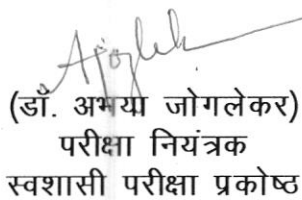 (डॉ. अभया जोगलेकर)
परीक्षा नियंत्रक
स्वशासी परीक्षा प्रकोष्ठ